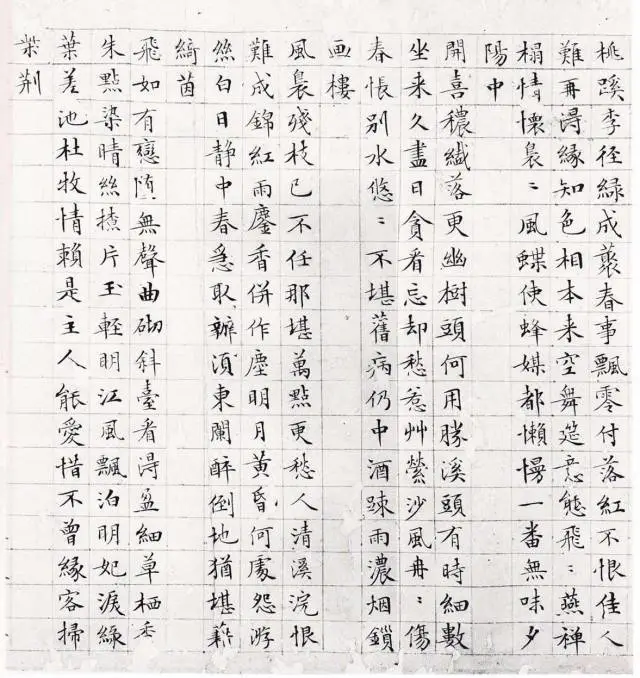 桃蹊李徑緑成藂春事飄零付落紅不恨佳人
難再淂緣知色相本来空舞筵意態飛〻燕禅
榻情懷裊〻風蝶使蜂媒都懶慢一番無味夕
陽中
開喜穠纖落更幽樹頭何用勝溪頭有時細數
坐来久盡日貪看忘却愁惹艸縈沙風冉〻傷
春悵别水悠〻不堪舊病仍中酒踈雨濃烟鎖
画樓
風裊殘枝已不任那堪萬點更愁人清溪浣恨
難成錦紅雨鏖香併作塵明月黄昏何處怨游
絲白日静中春急取辦湏東闌醉倒地猶堪藉
綺茵
飛如有戀墮無聲曲砌斜臺看淂盈細草栖香
朱點染晴絲撩片玉輊明江風飄泊明妃淚緑
葉差池杜牧情賴是主人能愛惜不曾緣客掃
柴荆